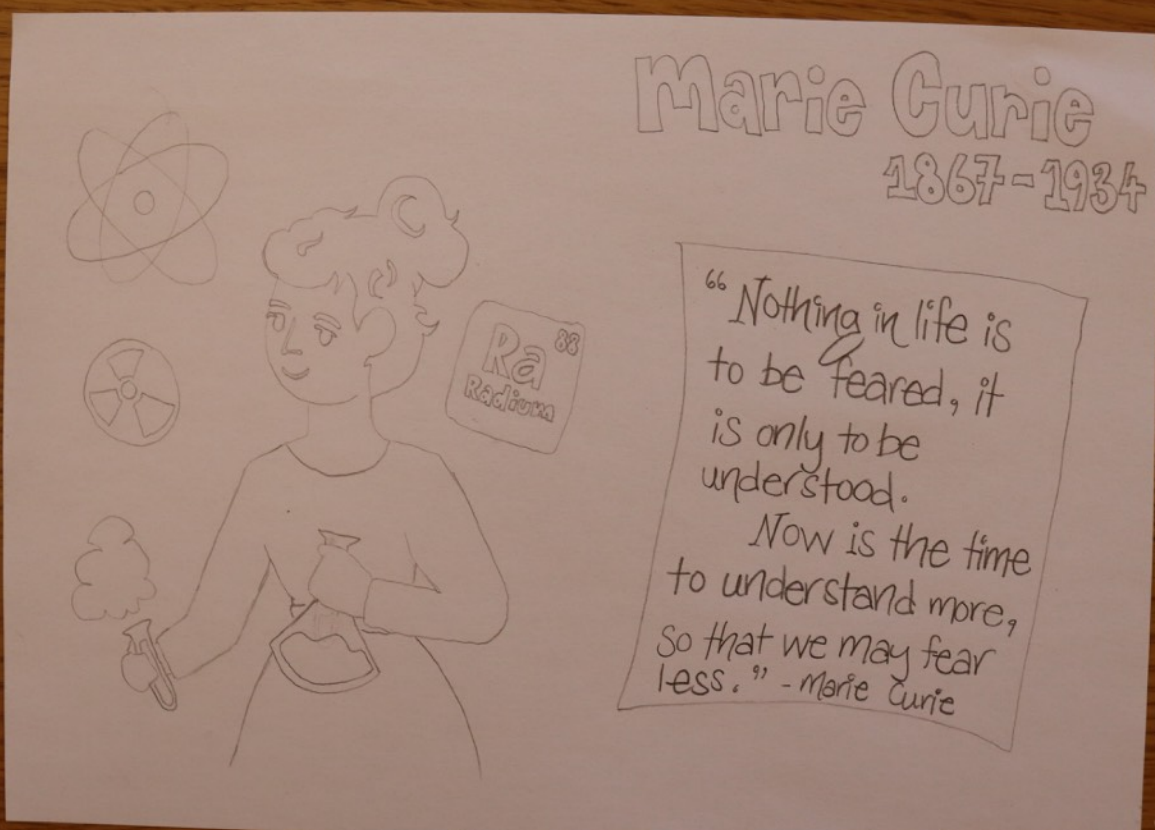 Marie Curie
1867-1934
Ra 88
Radium
“Nothing in life is
to be feared, it
is only to be
understood.
Now is the time
to understand more,
so that we may fear
less.” - Marie Curie